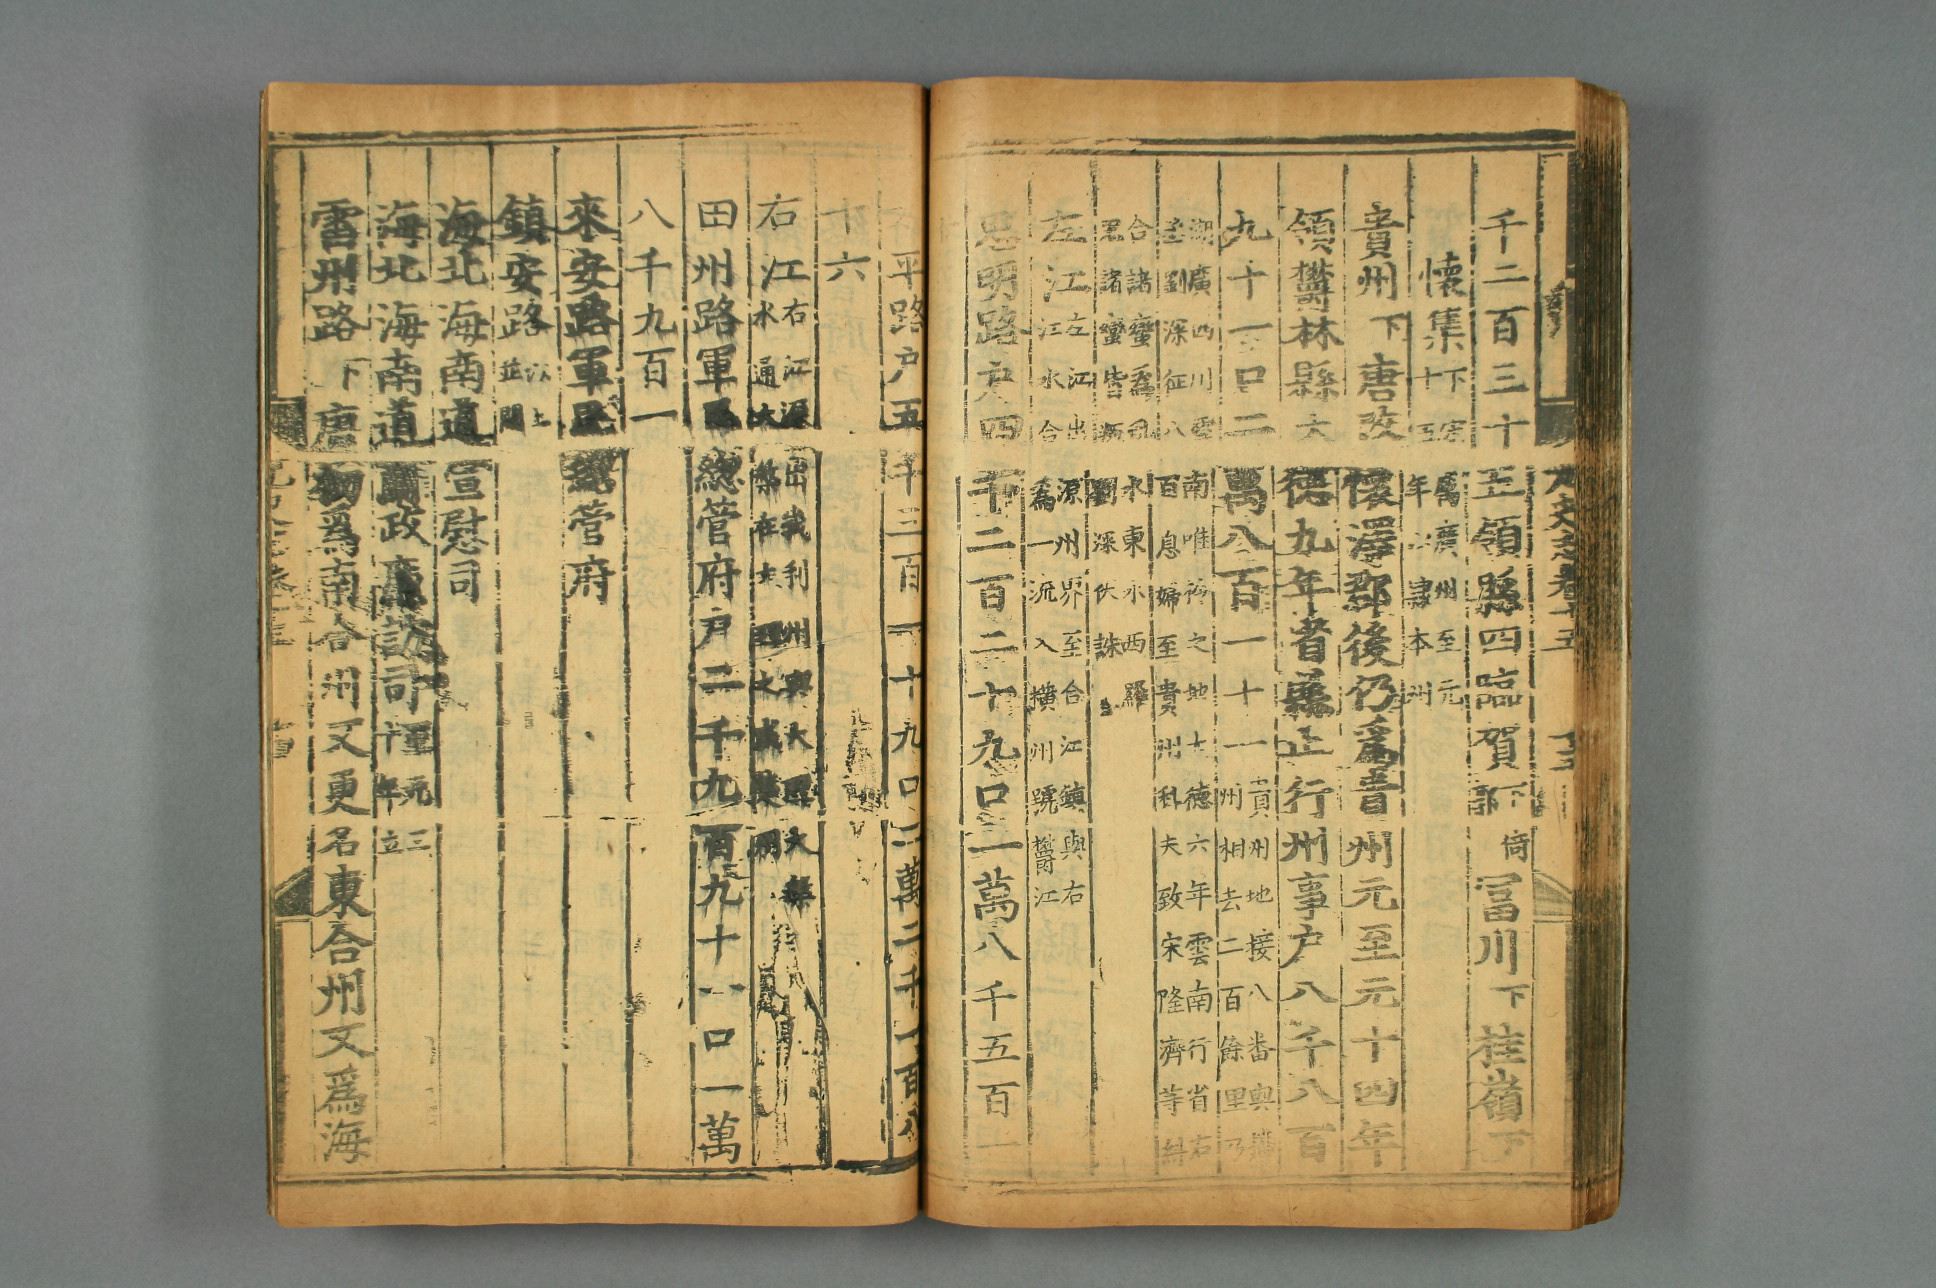 千二百三十五領縣四臨賀下倚富川下桂嶺下
懷集下宋屬廣州至元
十五年隸本州
貴州下唐改懷澤郡後仍爲貴州元至元十四年
領欝林縣大德九年省縣止行州事户八千八百
九十一口二萬八百一十一貴州地接八番與播
州相去二百餘里乃
湖廣四川雲南唯衿之地大德六年雲南行省右
丞劉深征八百息婦至貴州科夫致宋隆濟等糾
合諸蠻爲亂水東水西羅
鬼諸蠻皆叛劉深伏誅
左江左江出源州界至合江鎮與右
江水合爲一流入橫州號欝江
思明路户四千二百二十九口一萬八千五百一
十六
平路户五千三百一十九口二萬二千一百八
右江右江源出峩利州與大理大槃
水通大槃在大理之威楚州
田州路軍民總管府户二千九百九十一口一萬
八千九百一
來安路軍民總管府
鎮安路以上
並闕
海北海南道宣慰司
海北海南道肅政廉訪司至元三
十年立
雷州路下唐初爲南合州又更名東合州又爲海